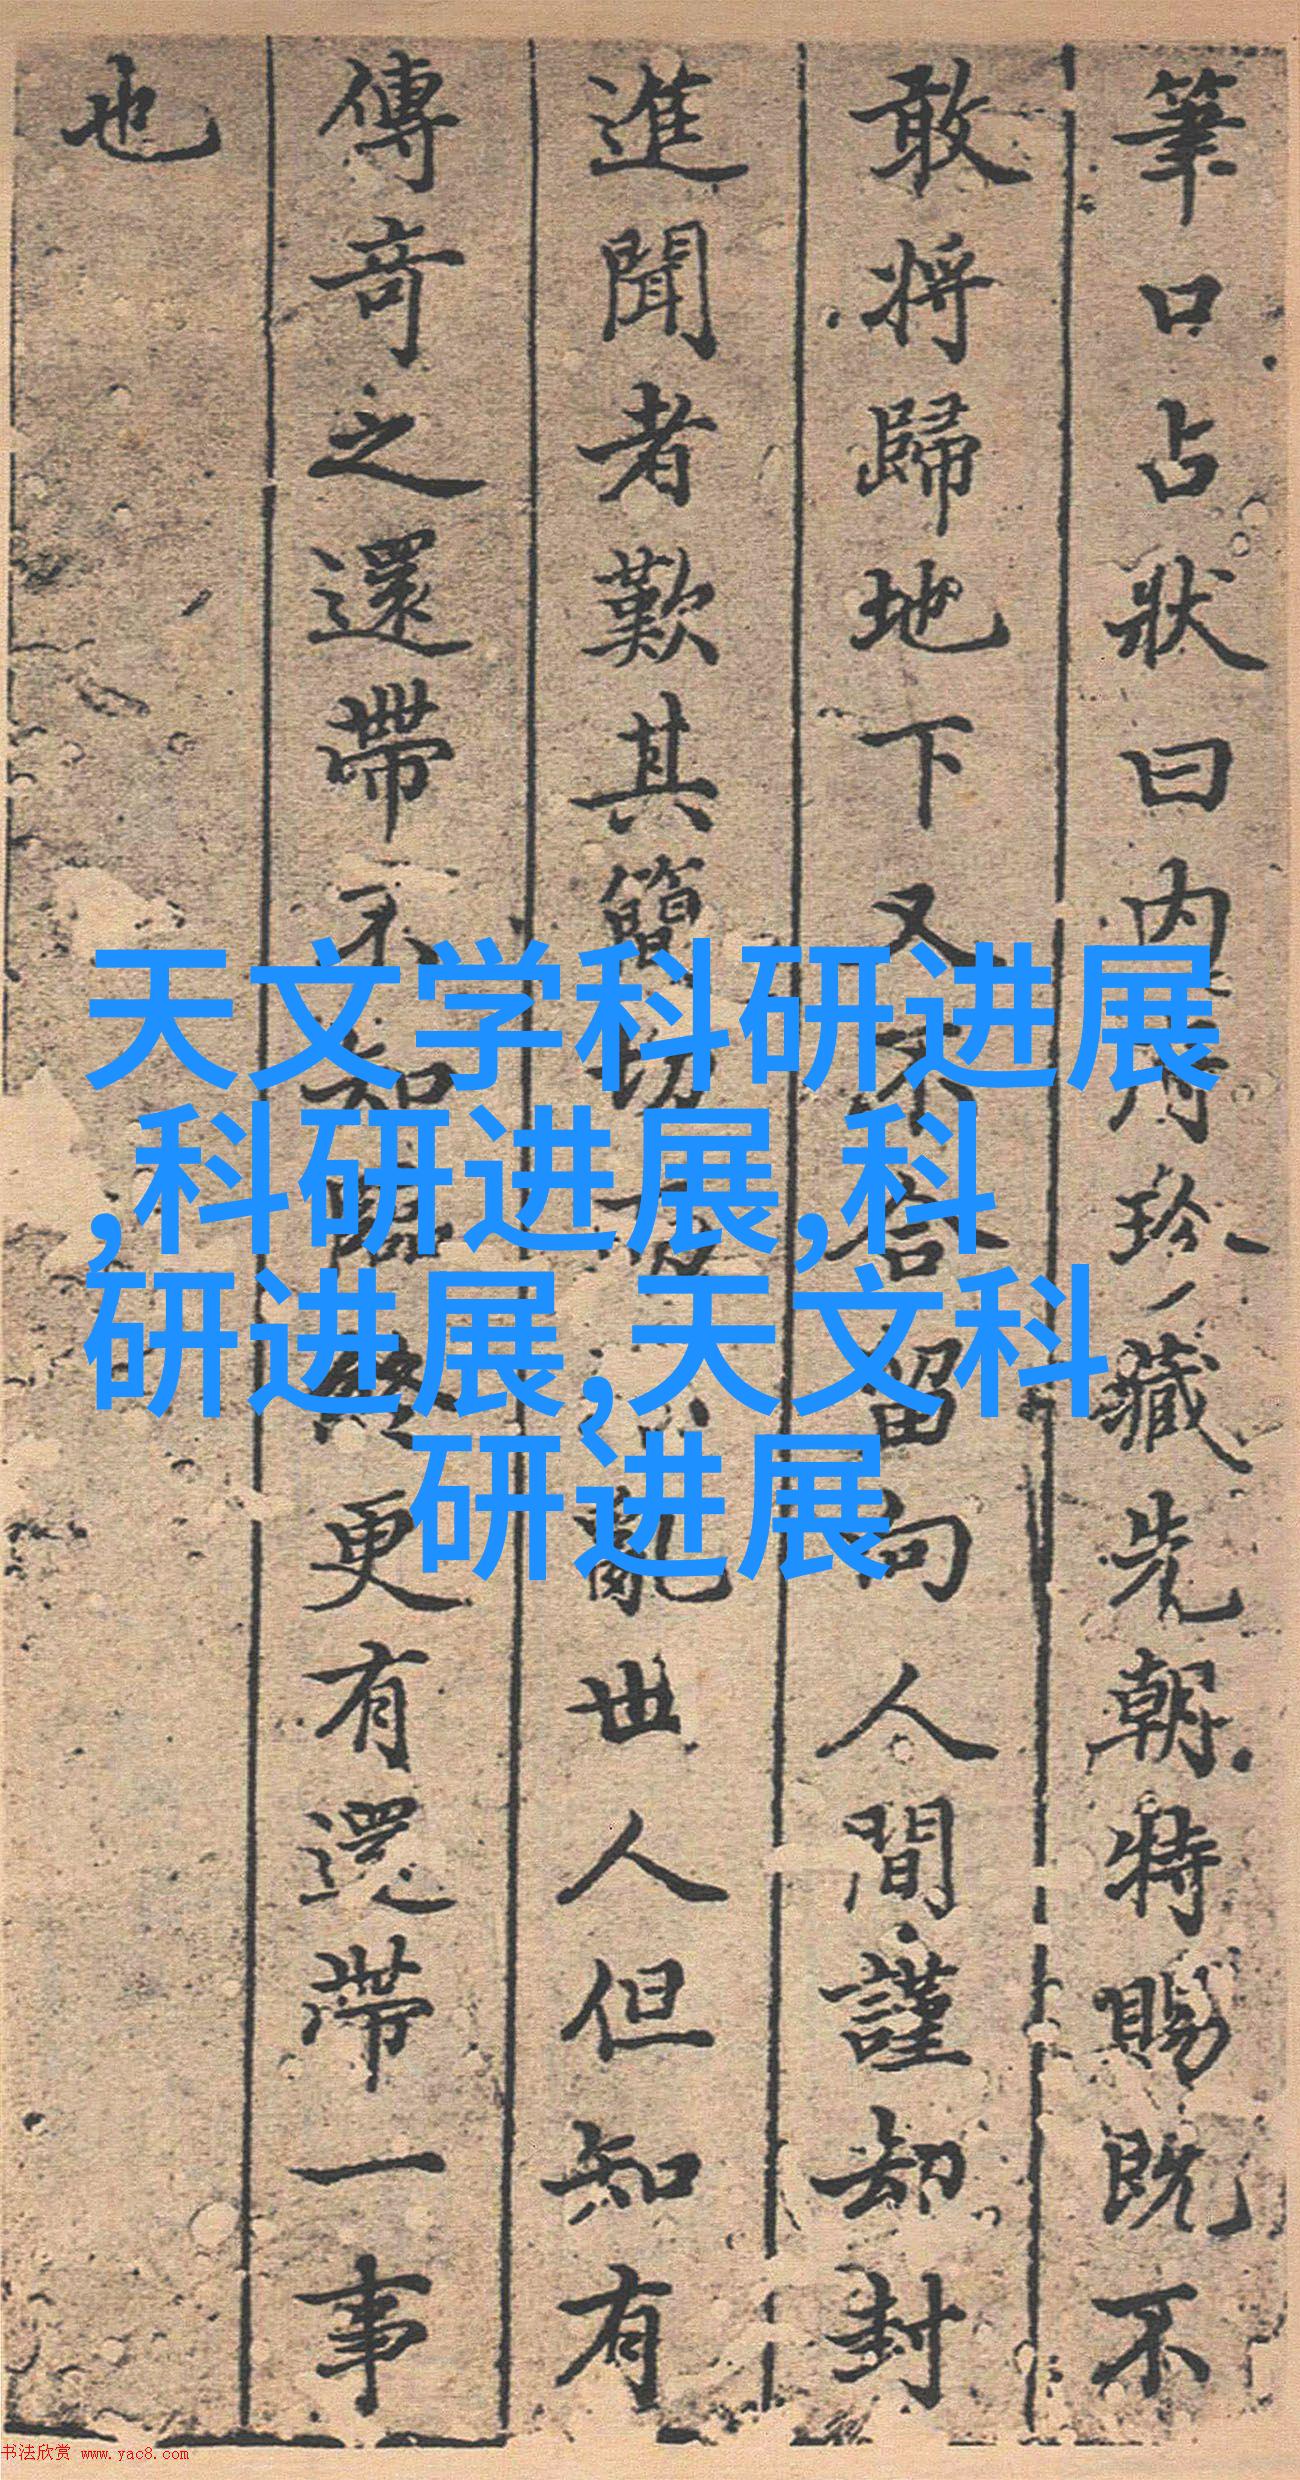 筆口占狀曰内府珍藏先朝特賜既不
敢將歸地下又不合留向人間謹却封
進聞者歎其簡切亂世人但知有
傳奇之還帶不知臨終更有還帶一事
也
天文学科研进展
,科研进展,科
研进展,天文科
研进展
书法欣赏 www.yac8.com